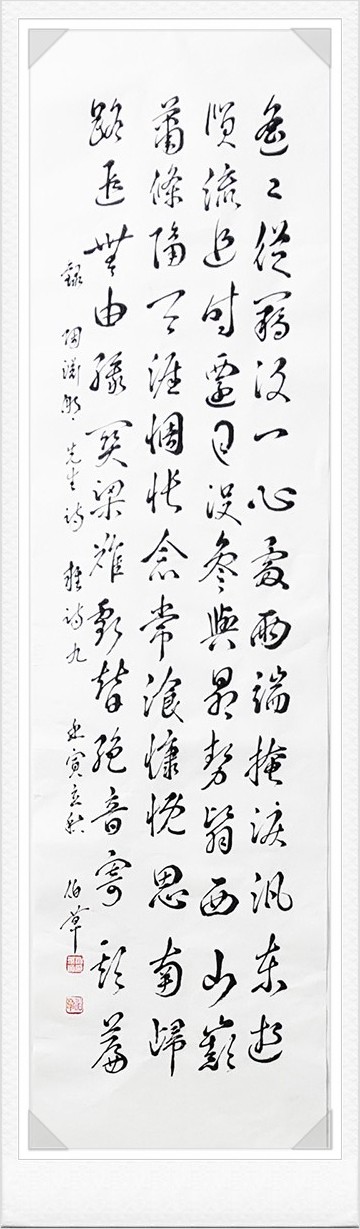 遙々從羈役一心處兩端掩淚汎東逝
順流追时遷日沒參與昴勢翳西山巔
蕭條隔天涯惆悵念常飡慷慨思南歸
路遐無由緣關梁難虧替絕音寄斯篇
錄陶淵明先生詩雜詩九 壬寅立秋 伯草